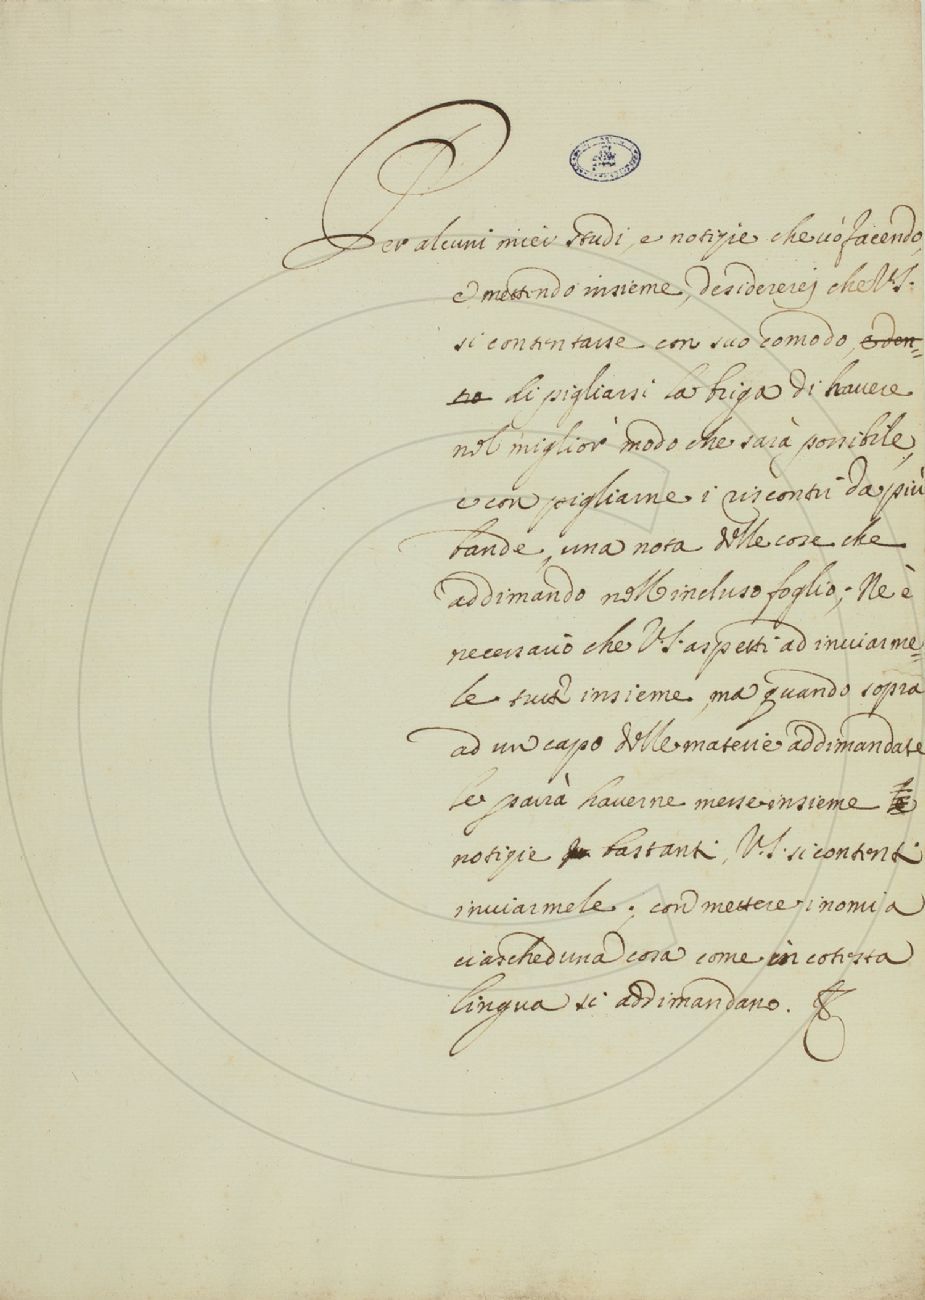 Per alcuni miei studi, e notizie che uò facendo,
e mettendo insieme, desidererej che V.S.
si contentasse con suo comodo, e den=
tro di pigliarsi la briga di hauere
nel miglior modo che sarà possibile,
e con pigliarne i riscontri da più
bande, una nota delle cose che
addimando nell'incluso foglio; Ne è
necessario che V.S. aspetti ad inuiarme=
le tutte insieme, ma quando sopra
ad un capo delle materie addimandate
le parrà hauerne messe insieme
notizie bastanti, V.S. si contenti
inuiarmele; con mettere i nomi a
ciascheduna cosa come in cotesta
lingua si addimandano.